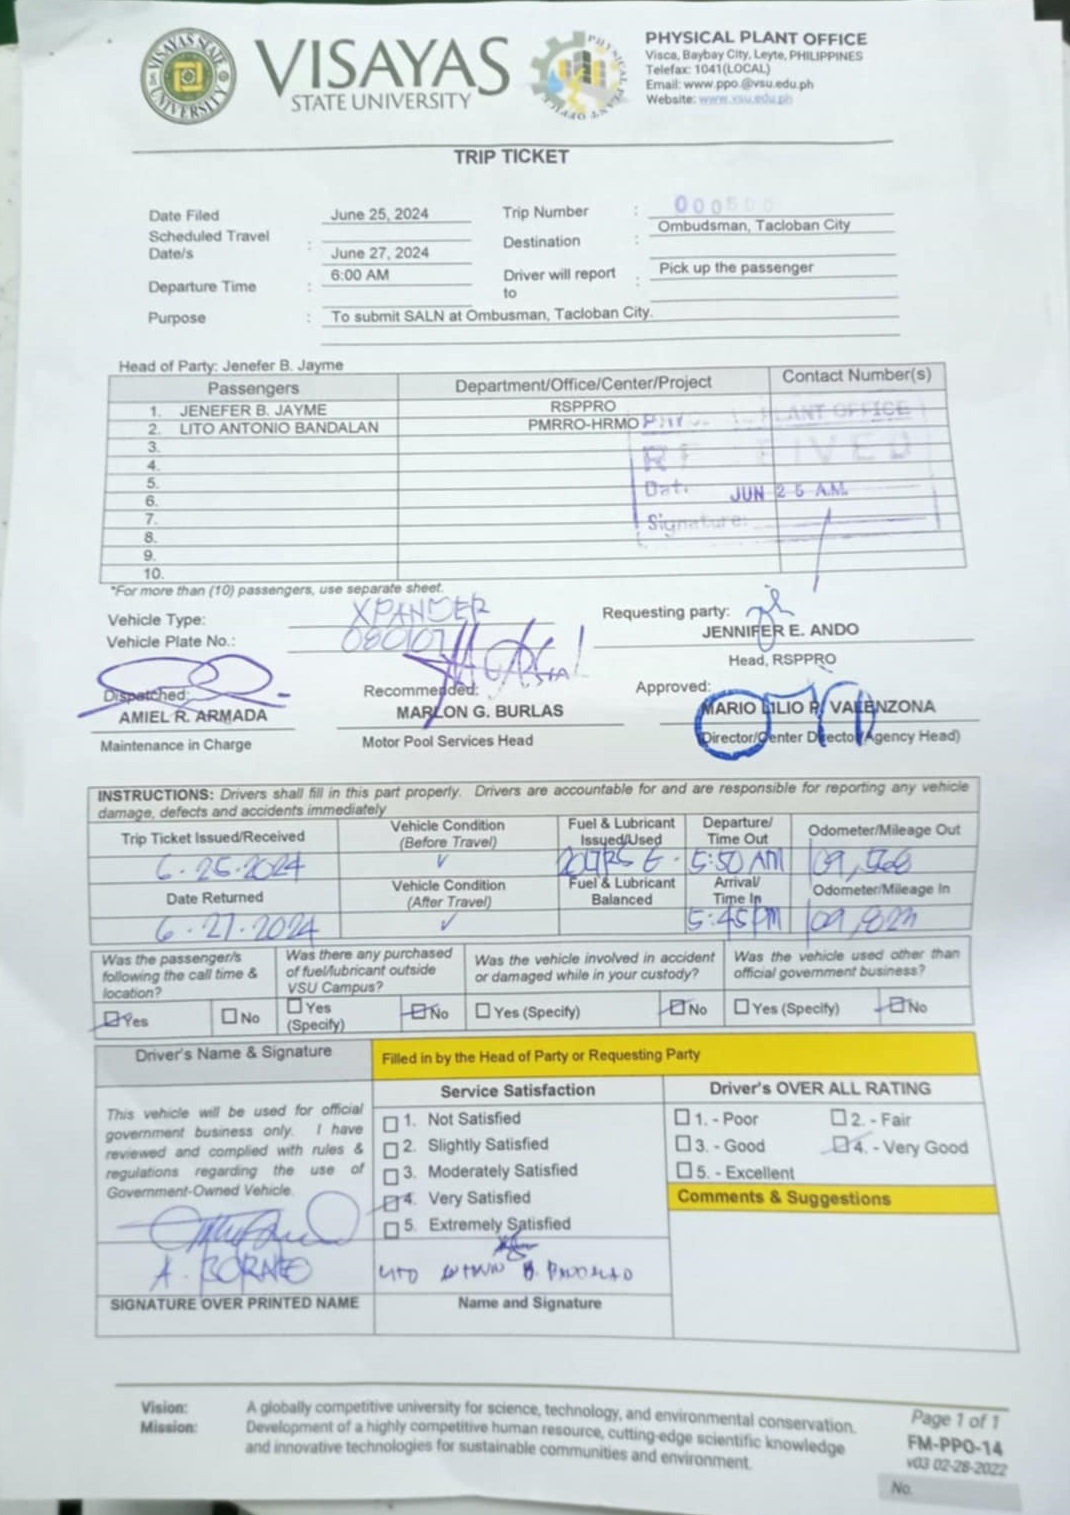 VISAYAS STATE UNIVERSITY
VISAYAS
STATE UNIVERSITY
PHYSICAL PLANT OFFICE
PHYSICAL PLANT OFFICE
Visca, Baybay City, Leyte, PHILIPPINES
Telefax: 1041(LOCAL)
Email: www.ppo.@vsu.edu.ph
Website: www.vsu.edu.ph
TRIP TICKET
Date Filed June 25, 2024 Trip Number :
Scheduled Travel Date/s : June 27, 2024 Destination : Ombudsman, Tacloban City
Departure Time : 6:00 AM Driver will report to : Pick up the passenger
Purpose : To submit SALN at Ombusman, Tacloban City.
Head of Party: Jenefer B. Jayme
Passengers Department/Office/Center/Project Contact Number(s)
1. JENEFER B. JAYME RSPPRO
2. LITO ANTONIO BANDALAN PMRRO-HRMO
3.
4.
5.
6.
7.
8.
9.
10.
PLANT OFFICE
Date: JUN 25 A.M.
Signature:
*For more than (10) passengers, use separate sheet.
Vehicle Type: XPANDER Requesting party:
Vehicle Plate No.: JENNIFER E. ANDO
Head, RSPPRO
Dispatched: Recommended: Approved:
AMIEL R. ARMADA MARLON G. BURLAS MARIO LILIO P. VALENZONA
Maintenance in Charge Motor Pool Services Head Director/Center Director(Agency Head)
INSTRUCTIONS: Drivers shall fill in this part properly. Drivers are accountable for and are responsible for reporting any vehicle
damage, defects and accidents immediately
Trip Ticket Issued/Received Vehicle Condition (Before Travel) Fuel & Lubricant Issued/Used Departure/ Time Out Odometer/Mileage Out
6-25-2024 ✓ 5:50 AM
Date Returned Vehicle Condition (After Travel) Fuel & Lubricant Balanced Arrival/ Time In Odometer/Mileage In
6-27-2024 ✓ 5:45PM
Was the passenger/s following the call time & location? Was there any purchased of fuel/lubricant outside VSU Campus? Was the vehicle involved in accident or damaged while in your custody? Was the vehicle used other than official government business?
Yes No Yes (Specify) No Yes (Specify) No Yes (Specify) No
Driver's Name & Signature Filled in by the Head of Party or Requesting Party
Service Satisfaction Driver's OVER ALL RATING
This vehicle will be used for official
government business only. I have
reviewed and complied with rules &
regulations regarding the use of
Government-Owned Vehicle.
1. Not Satisfied
2. Slightly Satisfied
3. Moderately Satisfied
4. Very Satisfied
5. Extremely Satisfied
1. - Poor 2. - Fair
3. - Good 4. - Very Good
5. - Excellent
Comments & Suggestions
A. BORNEO
SIGNATURE OVER PRINTED NAME Name and Signature
Vision: A globally competitive university for science, technology, and environmental conservation.
Mission: Development of a highly competitive human resource, cutting-edge scientific knowledge
and innovative technologies for sustainable communities and environment.
Page 1 of 1
FM-PPO-14
v03 02-28-2022
No.